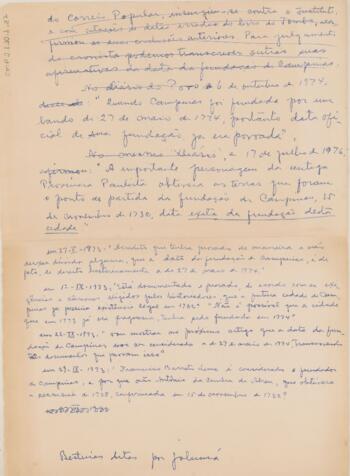 do Correio Popular, insurgiu-se contra o Instituto
e com citação de datas erradas do livro de Tombo, 
firmou as duas anteriores. Para julgamento
do cronista podemos transcrever outras suas
afirmativas da data da fundação de Campinas.
No diário do Povo de 6 de outubro de 1974,
: "Quando Campinas foi fundada por um
bando de 27 de maio de 1774, portanto data ofi-
cial de sua fundação, já era povoada",
No mesmo "Diário", a 17 de julho de 1976,
afirmou: "A importante personagem da antiga
Provincia Paulista obtivera as terras que foram
o ponto de partida da fundação de Campinas, 15
de novembro de 1730, data exata da fundação desta
cidade"
em 27-I-1973: "Acredito que tenha provado de maneira a não
deixar dúvida alguma, que a data da fundação de Campinas, é de
fato, de direito historicamente a de 27 de maio de 1774."
em 12-IX-1973: "Está documentado e provado, de acordo com as exi-
gências e cânones exigidos pelos historiadores, que a futura cidade de Cam-
pinas já possuia existência legal em 1732" "Não é possivel que a cidade
que em 1773 já era freguesia, tenha sido fundada em 1774"
em 22-IX-1973: "vou mostrar no próximo artigo que a data da fun-
dação de Campinas deve ser considerada a de 27 de maio de 1774 Transcrevendo
documentos que provam isso"
em 29-IX-1973: "Francisco Barreto Leme é considerado o fundador
de Campinas, e por que não Antônio da Cunha de Abreu, que obtivera
a sesmaria a 1728, confirmada em 15 de novembro de 1732?
Besteiras ditas por Jolumá